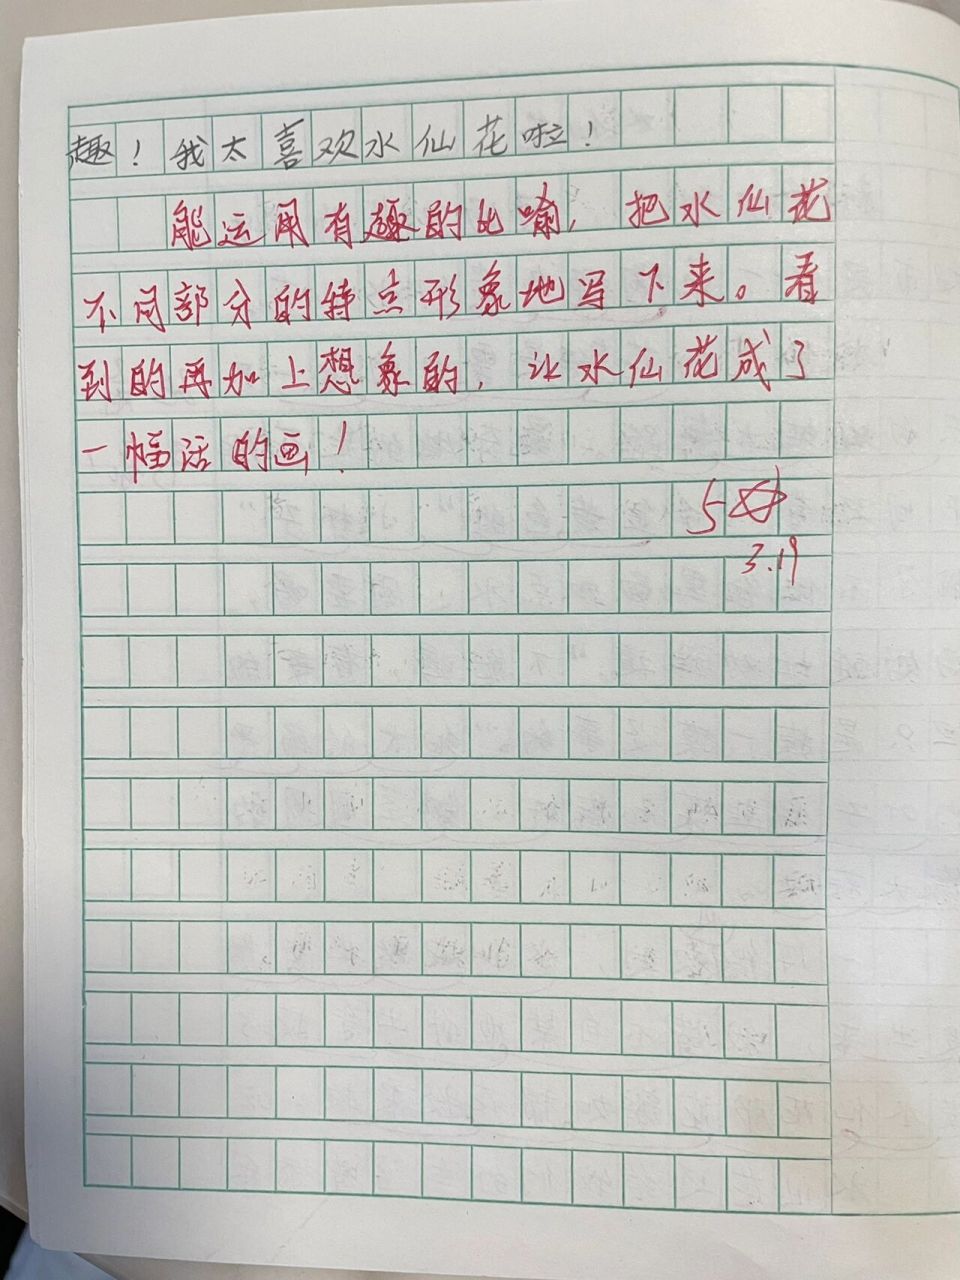 趣！我太喜欢水仙花啦！
能运用有趣的比喻，把水仙花
不同部分的特点形象地写下来。看
到的再加上想象的，让水仙花成了
一幅活的画！
5☆
3.19